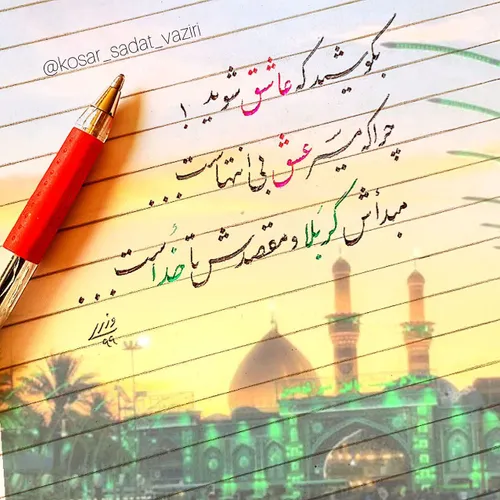 @kosar_sadat_vaziri
بکوشید که عاشق شوید !
چرا که مسیرِ عشق بی انتهاست...
مبدأش کربلا و مقصدش تا خداست...
وزیری
۹۹